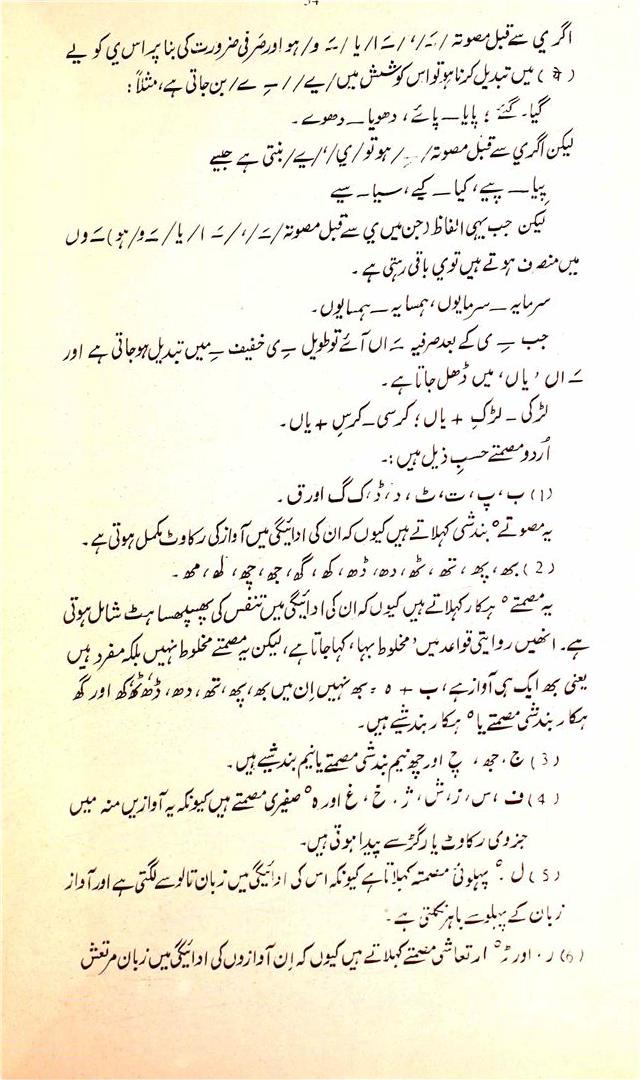 34
اگر ی سے قبل مصوتہ /ــَـ/، /ــَـ ا/ یا /ــَـ و/ ہو اور صرفی ضرورت کی بنا پر اس ی کو یے
(ये) میں تبدیل کرنا ہو تو اس کوشش میں /یے/ /ــِـ ے/ بن جاتی ہے، مثلاً:
گیا۔ گئے ؛ پایا — پائے، دھویا — دھوے۔
لیکن اگر ی سے قبل مصوتہ /ــِـ/ ہو تو /ی/، /یے/ بنتی ہے جیسے
پِیا — پیے، کیا — کیے، سیا — سیے
لیکن جب یہی الفاظ (جن میں ی سے قبل مصوتہ /ــَـ/، /ــَـ ا/ یا /ــَـ و/ ہو) ــَـ وں
میں منصرف ہوتے ہیں تو ی باقی رہتی ہے۔
سرمایہ — سرمایوں، ہمسایہ — ہمسایوں۔
جب ــِـ ی کے بعد صرفیہ ــَـ اں آئے تو طویل ــِـ ی خفیف ــِـ میں تبدیل ہو جاتی ہے اور
ــَـ اں ’یاں‘ میں ڈھل جاتا ہے۔
لڑکی – لڑکِ + یاں ؛ کرسی – کرسِ + یاں۔
اُردو مصمتے حسبِ ذیل ہیں :۔
(1) ب، پ، ت، ٹ، د، ڈ، ک گ اور ق۔
یہ مصوتے ° بندشی کہلاتے ہیں کیوں کہ ان کی ادائیگی میں آواز کی رکاوٹ مکمل ہوتی ہے۔
(2) بھ، پھ، تھ، ٹھ، دھ، ڈھ، کھ، گھ، جھ، چھ، لھ، مھ۔
یہ مصمتے ° ہکار کہلاتے ہیں کیوں کہ ان کی ادائیگی میں تنفس کی پھسپھساہٹ شامل ہوتی
ہے۔ انھیں روایتی قواعد میں ’مخلوط بہا‘ کہا جاتا ہے، لیکن یہ مصمتے مخلوط نہیں بلکہ مفرد ہیں
یعنی بھ ایک ہی آواز ہے، ب + ہ = بھ نہیں اِن میں بھ، پھ، تھ، دھ، ڈھ، ٹھ، کھ اور گھ
ہکار بندشی مصمتے یا ° ہکار بندشیے ہیں۔
(3) ج، جھ، چ اور چھ نیم بندشی مصمتے یا نیم بندشیے ہیں۔
(4) ف، س، ز، ش، ژ، خ، غ اور ہ ° صفیری مصمتے ہیں کیونکہ یہ آوازیں منہ میں
جزوی رکاوٹ یا رگڑ سے پیدا ہوتی ہیں۔
(5) ل ° پہلوئی مصمتہ کہلاتا ہے کیونکہ اس کی ادائیگی میں زبان تالو سے لگتی ہے اور آواز
زبان کے پہلو سے باہر نکلتی ہے۔
(6) ر، اور ڑ ° ارتعاشی مصمتے کہلاتے ہیں کیوں کہ اِن آوازوں کی ادائیگی میں زبان مرتعش